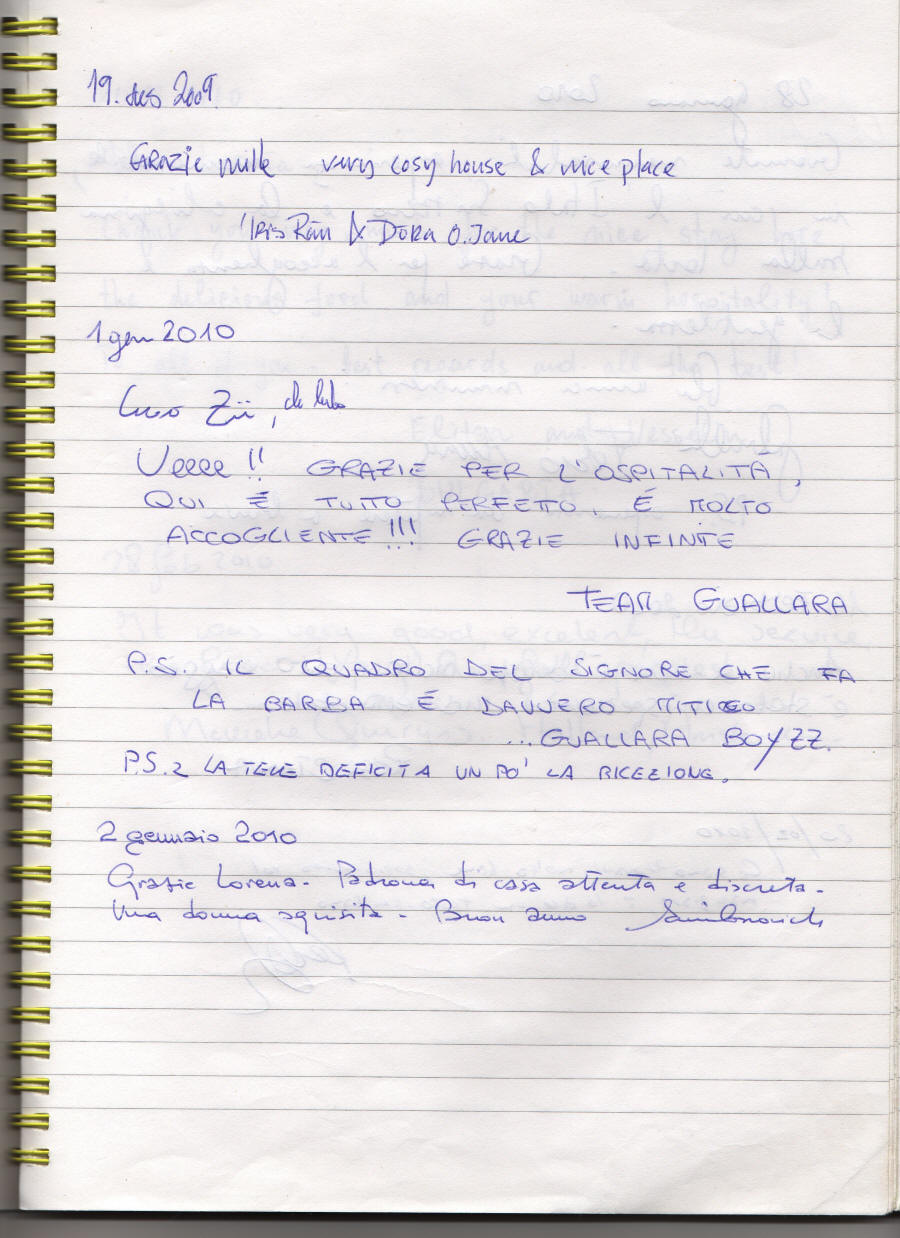 19. des 2009
GRAZIE mille very cosy house & nice place
Iris Rán & DÓRA O. Jane
1 gen 2010
Zii,
Ueeee!! GRAZIE PER L'OSPITALITÀ,
QUI È TUTTO PERFETTO, É MOLTO
ACCOGLIENTE!!! GRAZIE INFINITE
TEAM GUALLARA
P.S. IL QUADRO DEL SIGNORE CHE FA
LA BARBA É DAVVERO MITICO
...GUALLARA BOYZZ.
P.S. 2 LA TELE DEFICITA UN PO' LA RICEZIONE.
2 gennaio 2010
Grazie Lorena. Padrona di casa attenta e discreta.
Una donna squisita. Buon anno